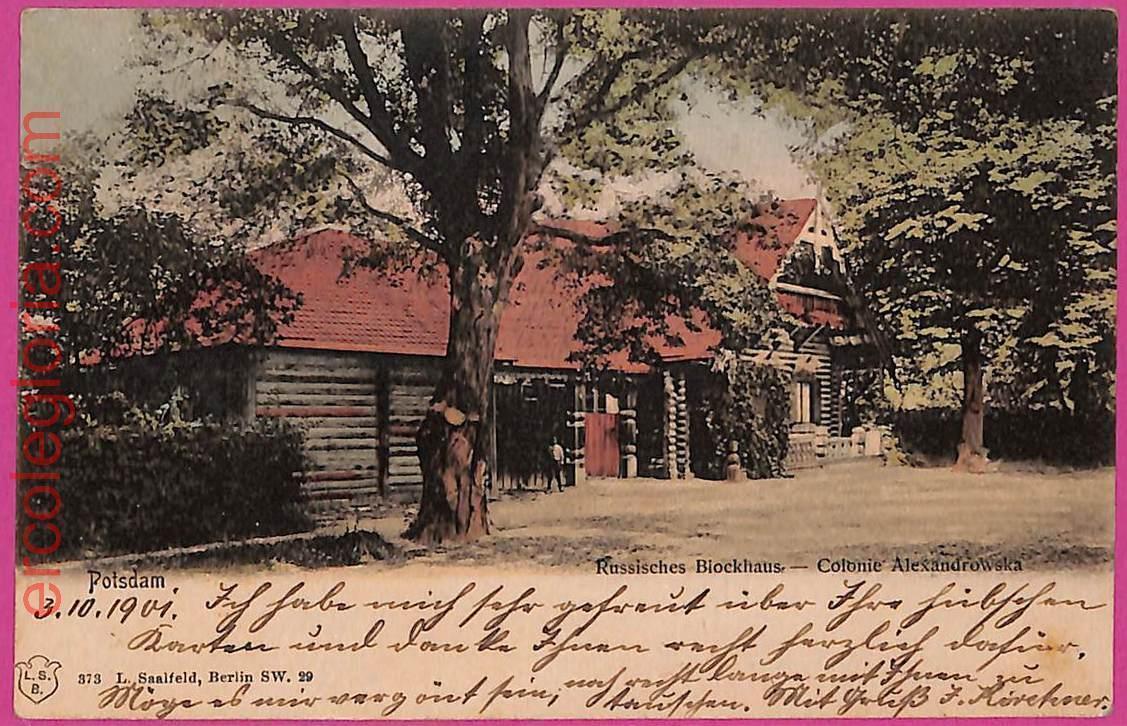 ercolegioria.com
Russisches Blockhaus. — Colonie Alexandrowska
Potsdam
3.10.1901. Ich habe mich sehr gefreut über Ihre hübschen
Karten und danke Ihnen recht herzlich dafür.
L. S. B.
373 L. Saalfeld, Berlin SW. 29
Möge es mir vergönt sein, noch recht lange mit Ihnen zu
tauschen. Mit Gruß J.